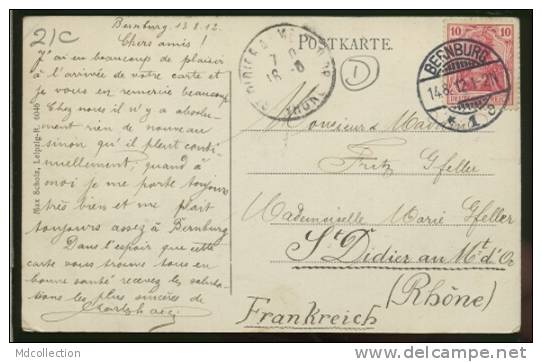 2/C
Bernburg 13.8.12.
Chers amis!
J'ai eu beaucoup de plaisir
à l'arrivée de votre carte et
je vous en remercie beaucoup
Chez nous il n'y a absolu-
ment rien de nouveau
sinon qu'il pleut conti-
nuellement, quand à
moi je me porte toujours
très bien et me plait
toujours assez à Bernburg
Dans l'espoir que cette
carte vous trouve tous en
bonne santé recevez les saluta-
tions les plus sincères de
Max Scholz, Leipzig-R. 6046
POSTKARTE.
1
RHONE
10 10
BERNBURG
14.8.12.1-2N
* 1 c
Monsieur & Madame
Fritz Gfeller
Mademoiselle Marie Gfeller
St Didier au Mt d'Or
(Rhône)
Frankreich
MDcollection
http://www.delcampe.net